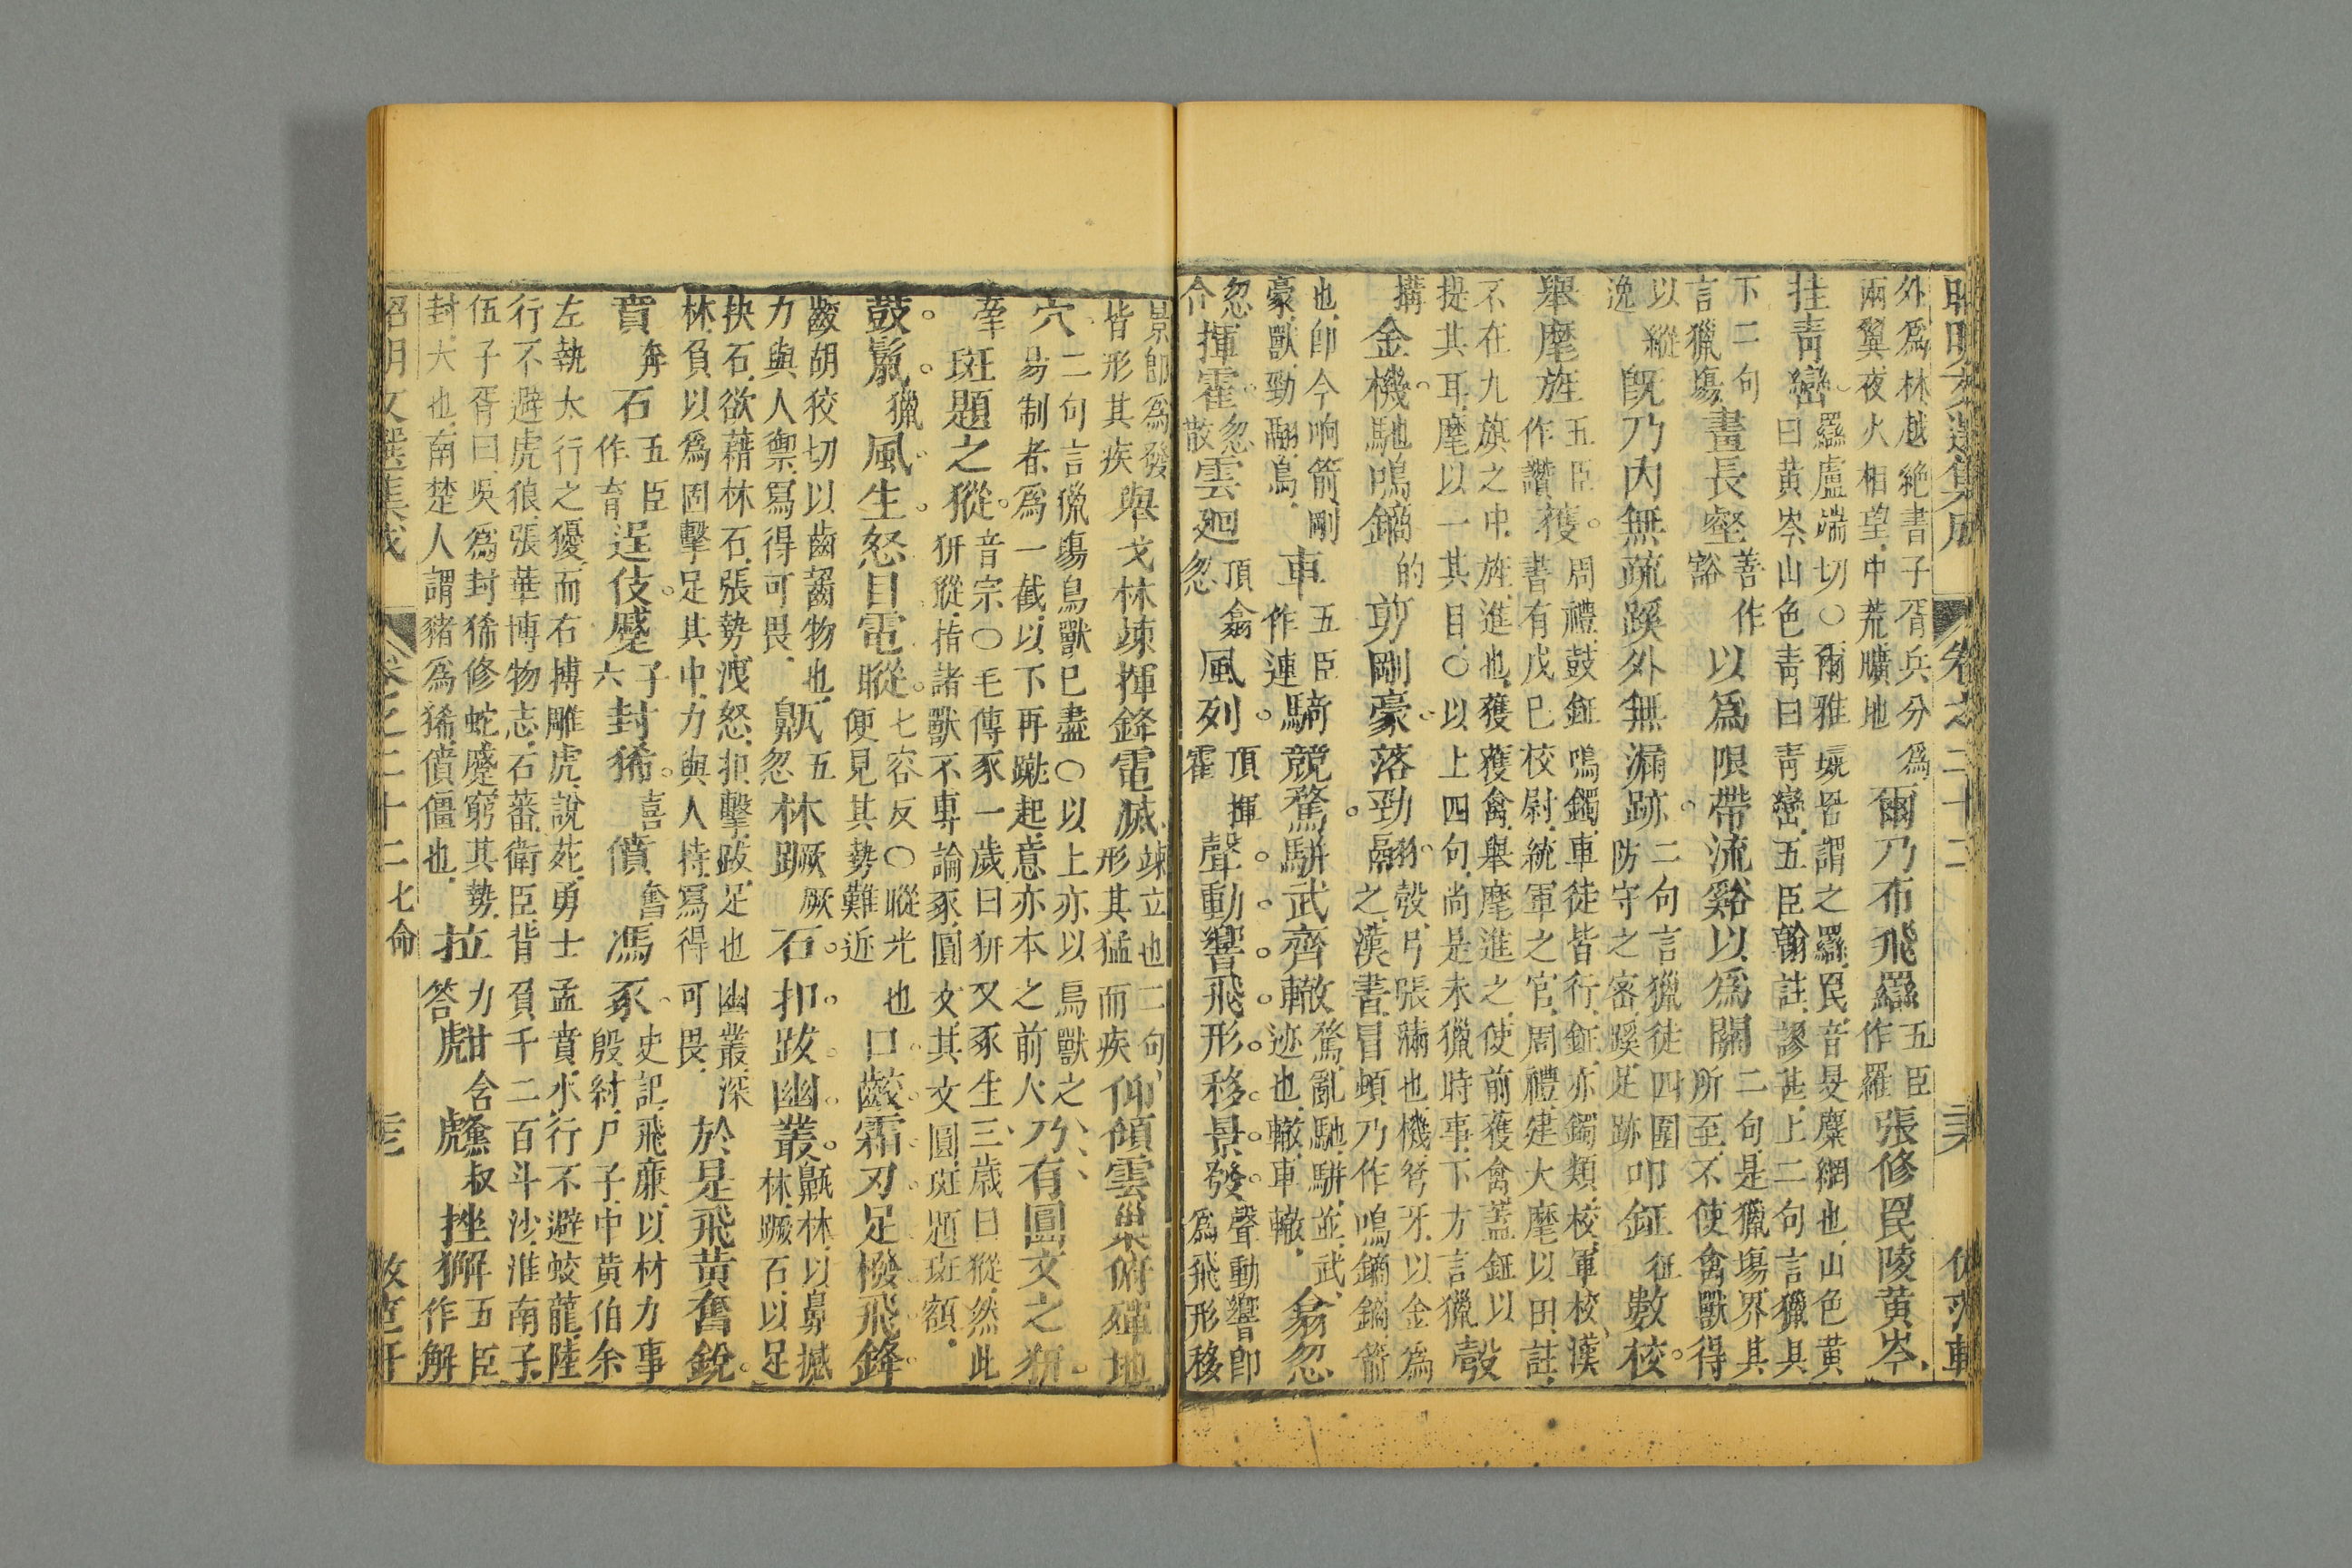 外爲林越絶書子胥兵分爲
兩翼夜火相望中荒曠地
爾乃布飛羉五臣作羅張修罠陵黄岑
挂青巒
羉盧端切〇爾雅彘罟謂之羉罠音旻麋網也山色黄
曰黄岑山色青曰青巒五臣翰註謬甚上二句言獵具
下二句
言獵塲
畫長壑善作豁以爲限帶流谿以爲關
二句是獵塲界其
所至不使禽獸得
以縱
逸
旣乃内無疏蹊外無漏跡
二句言獵徒四圍
防守之密蹊足跡
叩鉦征數校
舉麾旌五臣作讚獲
周禮鼓鉦鳴鐲車徒皆行鉦亦鐲類校軍校漢
書有戊巳校尉統軍之官周禮建大麾以田註
不在九旗之中旌進也獲獲禽舉麾進之使前獲禽蓋鉦以
提其耳麾以一其目〇以上四句尚是未獵時事下方言獵
彀
搆金機馳鳴鏑的剪剛豪落勁翮
彀弓張滿也機弩牙以金爲
之漢書冒頓乃作鳴鏑鏑箭
也卽今响箭剛
豪獸勁翮鳥
車五臣作連騎競騖駢武齊轍
騖亂馳駢並武
迹也轍車轍
翕忽
忽合揮霍忽散雲廻頂翕忽風列頂揮霍聲動響飛形移景發
聲動響卽
爲飛形移
景卽爲發
皆形其疾
舉戈林竦揮鋒電滅
竦立也二句
形其猛而疾
仰傾雲巢俯殫地
穴
二句言獵塲鳥獸巳盡〇以上亦以鳥獸之
易制者爲一截以下再蹴起意亦本之前人
乃有圓文之豜
牽斑題之豵
音宗〇毛傳豕一歲曰豜又豕生三歲曰豵然此
豜豵指諸獸不專論豕圓文其文圓斑題斑額
鼓鬛獵風生怒目電瞛
七容反〇瞛光也
便見其勢難近
口齩霜刃足撥飛鋒
齩胡狡切以齒齧物也
力與人禦寫得可畏
齀五忽林蹶厥石扣跋幽叢
齀林以鼻撼
林蹶石以足
抉石欲藉林石張勢洩怒扣擊跋足也幽叢深
林負以爲固擊足其中力與人持寫得可畏
於是飛黄奮銳
賁奔石五臣作育逞伎蹙子六封狶喜僨奮馮豕
史記飛廉以材力事
殷紂尸子中黄伯余
左執太行之獶而右搏雕虎說苑勇士孟賁水行不避蛟龍陸
行不避虎狼張華博物志石蕃衛臣背負千二百斗沙淮南子
伍子胥曰吳爲封狶修蛇蹙窮其勢
封大也南楚人謂豬爲狶僨僵也
拉力答甝含虪叔挫獬五臣作解
昭明文選集成 卷之二十二 七命